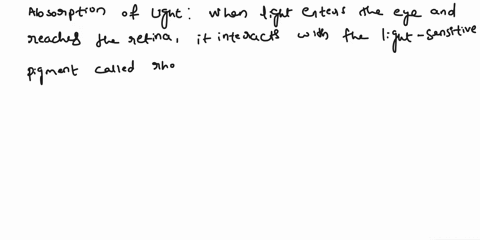 Absorption of Light: when light enters the eye and
reaches the retina, it interacts with the light-sensitive
pigment called rho